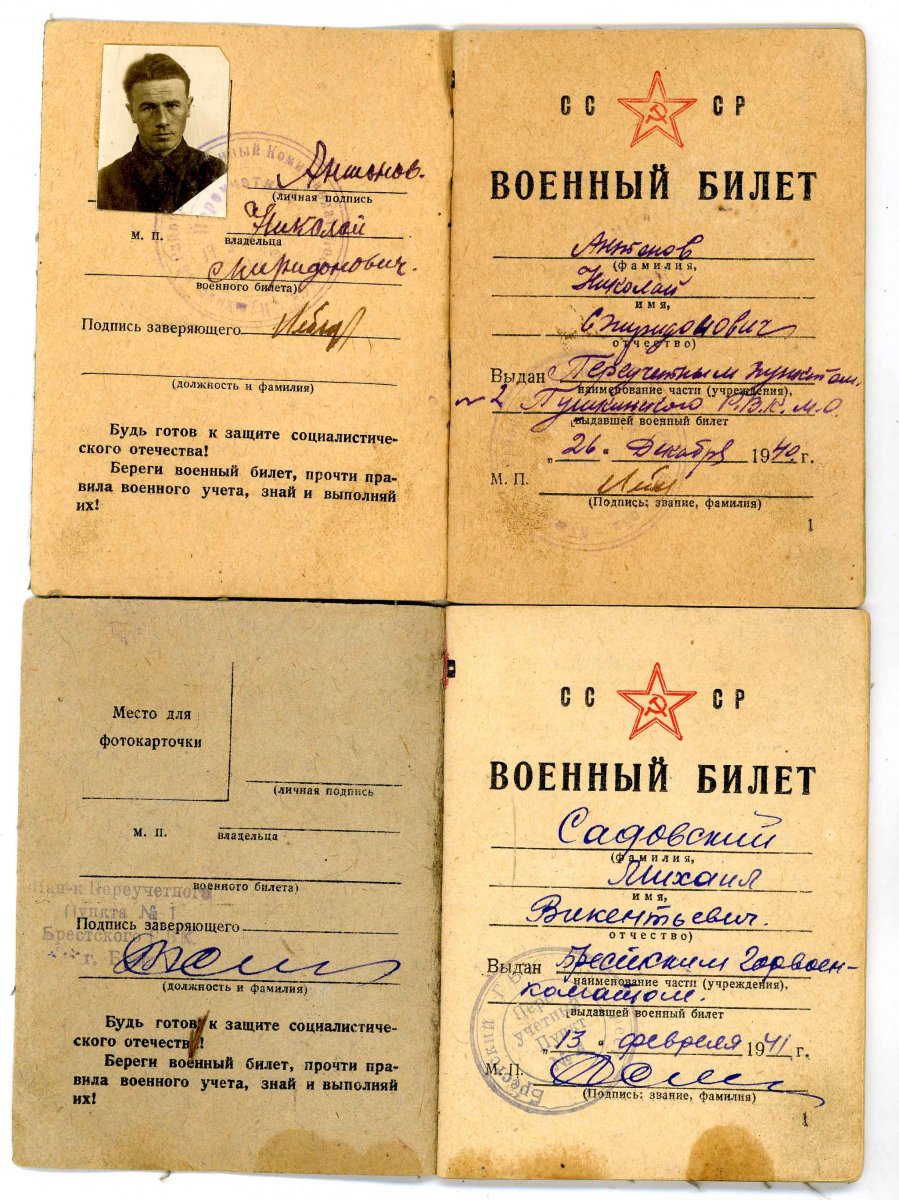 Антонов.
(личная подпись
М. П.
Николай
владельца
Спиридонович.
военного билета)
Подпись заверяющего
(должность и фамилия)
Будь готов к защите социалистиче-
ского отечества!
Береги военный билет, прочти пра-
вила военного учета, знай и выполняй
их!
СС СР
ВОЕННЫЙ БИЛЕТ
Антонов
(фамилия,
Николай
имя,
Спиридонович
отчество)
Выдан Переучетным пунктом
наименование части (учреждения),
№ 2 Пушкинского Р.В.К. М.О.
выдавшей военный билет
„26“ Декабря 1940 г.
М. П.
(Подпись: звание, фамилия)
1
Место для
фотокарточки
(личная подпись
М. П.
владельца
военного билета)
Нач-к Переучетного
Пункта № 1
Брестского
Подпись заверяющего
(должность и фамилия)
Будь готов к защите социалистиче-
ского отечества!
Береги военный билет, прочти пра-
вила военного учета, знай и выполняй
их!
СС СР
ВОЕННЫЙ БИЛЕТ
Садовский
(фамилия,
Михаил
имя,
Викентьевич.
отчество)
Выдан Брестским Горвоен-
наименование части (учреждения),
коматом.
(выдавшей военный билет
„13“ февраля 1941 г.
М. П.
(Подпись: звание, фамилия)
Брестский
Пере-
учетный
Пункт
№ 1
1